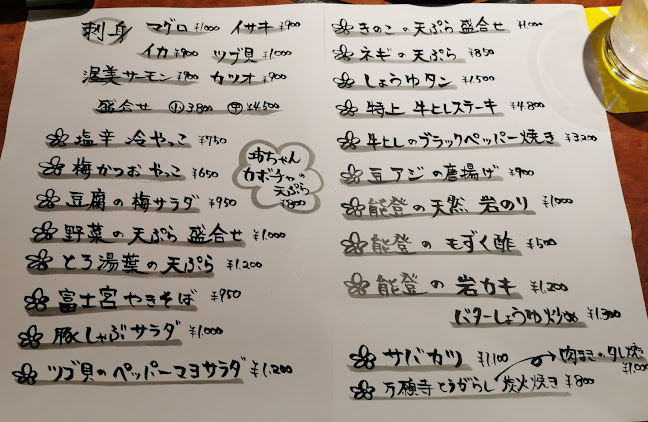 刺身 マグロ ¥1000 イサキ ¥900
イカ ¥900 ツブ貝 ¥1000
渥美サーモン ¥900 カツオ ¥900
盛合せ 小 3,800 中 ¥4,500
塩辛 冷やっこ ¥750
梅かつおやっこ ¥650
豆腐の梅サラダ ¥950
野菜の天ぷら 盛合せ ¥1,000
とろ湯葉の天ぷら ¥1,200
富士宮やきそば ¥950
豚しゃぶサラダ ¥1,000
ツブ貝のペッパーマヨサラダ ¥1,200
坊ちゃん
カボチャの
天ぷら
¥800
きのこの天ぷら 盛合せ ¥1,000
ネギの天ぷら ¥850
しょうゆタン ¥1,500
特上 牛としステーキ ¥4,800
牛としのブラックペッパー焼き ¥3,200
豆アジの唐揚げ ¥900
能登の天然 岩のり ¥1,000
能登の もずく酢 ¥500
能登の 岩カキ ¥1,200
バターしょうゆ炒め ¥1,300
サバカツ ¥1,100
肉まきのタレ焼 ¥1,000
万願寺とうがらし 炭火焼き ¥800